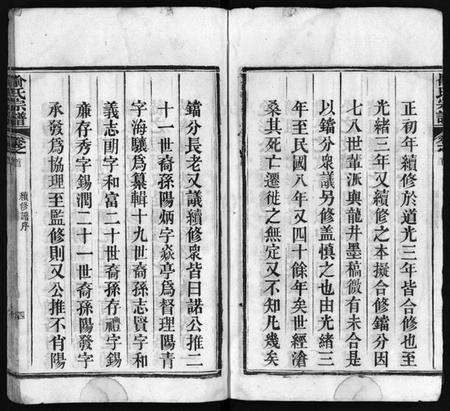 正初年續修於道光三年皆合修也至
光緒三年又續修之本擬合修鐺分因
七八世輩派與龍井墨稿微有未合是
以鐺分眾議另修蓋慎之也由光緒三
年至民國八年又四十餘年矣世經滄
桑其死亡遷徙之無定又不知凡幾矣
鐺分長老又議續修眾皆曰諾公推二
十一世裔孫陽炳字焱亭為督理陽青
字海驤為纂輯十九世裔孫志賢字和
義志明字和富二十世裔孫存禮字錫
廉存秀字錫潤二十一世裔孫陽發字
承發為協理至監修則又公推不肖陽
續修譜序
四
俞氏宗譜
卷之首
氏宗譜